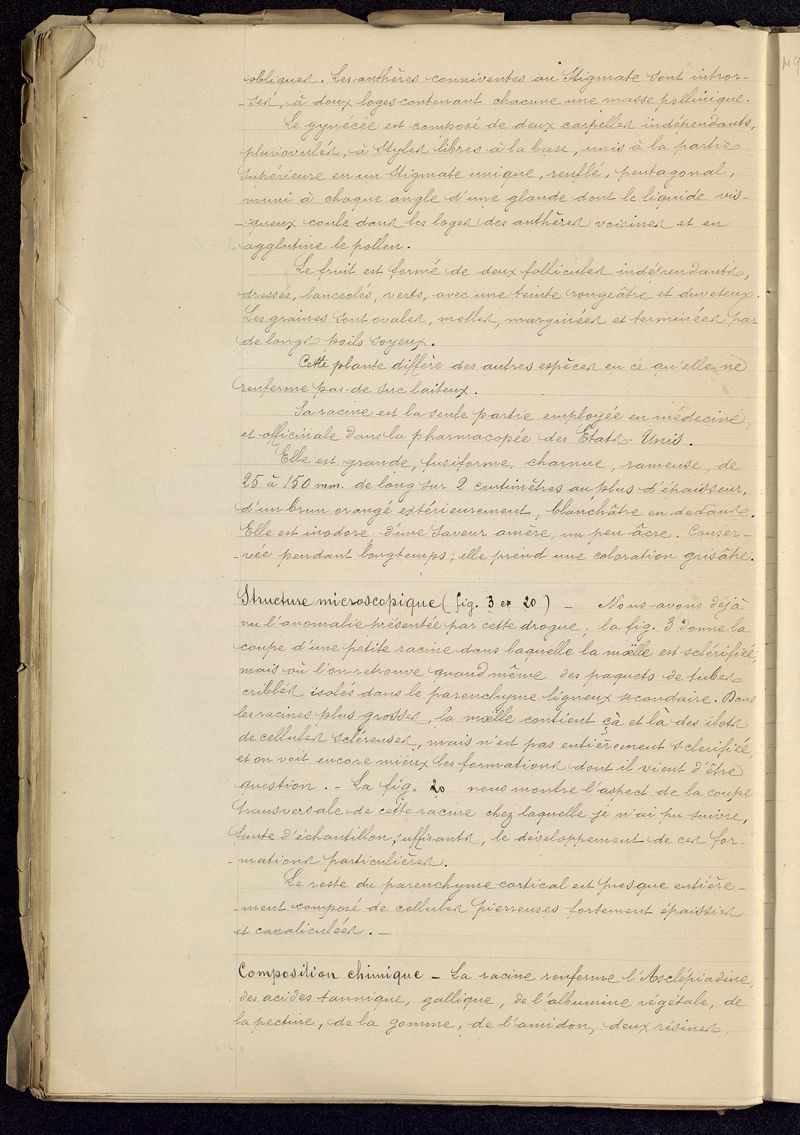 obliques. Les anthères conniventes au stigmate sont intror-
-ses, à deux loges contenant chacune une masse pollinique.
Le gynécée est composé de deux carpelles indépendants,
pluriovulés, à styles libres à la base, unis à la partie
supérieure en un stigmate unique, renflé, pentagonal,
muni à chaque angle d'une glande dont le liquide vis-
-queux coule dans les loges des anthères voisines et en
agglutine le pollen.
Le fruit est formé de deux follicules indépendants,
dressés, lancéolés, verts, avec une teinte rougeâtre et duveteux.
Les graines sont ovales, molles, marginées et terminées par
de longs poils soyeux.
Cette plante diffère des autres espèces en ce qu'elle ne
renferme pas de suc laiteux.
Sa racine est la seule partie employée en médecine,
et officinale dans la pharmacopée des Etats-Unis.
Elle est grande, fusiforme, charnue, rameuse, de
25 à 150 mm. de long sur 2 centimètres au plus d'épaisseur,
d'un brun orangé extérieurement, blanchâtre en dedans.
Elle est inodore, d'une saveur amère, un peu âcre. Conser-
-vée pendant longtemps, elle prend une coloration grisâtre.
Structure microscopique (fig. 3 et 20) — Nous avons déjà
vu l'anomalie présentée par cette drogue; la fig. 3 donne la
coupe d'une petite racine dans laquelle la mœlle est sclérifiée,
mais où l'on retrouve quand même des paquets de tubes
criblés isolés dans le parenchyme ligneux secondaire. Dans
les racines plus grosses, la mœlle contient çà et là des îlots
de cellules scléreuses, mais n'est pas entièrement sclerifiée,
et on voit encore mieux les formations dont il vient d'être
question. - La fig. 20 nous montre l'aspect de la coupe
transversale de cette racine chez laquelle je n'ai pu suivre,
faute d'échantillons suffisants, le développement de ces for-
-mations particulières.
Le reste du parenchyme cortical est presque entière-
-ment composé de cellules pierreuses fortement épaissies
et canaliculées. —
Composition chimique — La racine renferme l'Asclépiadine,
des acides tannique, gallique, de l'albumine végétale, de
la pectine, de la gomme, de l'amidon, deux résines,